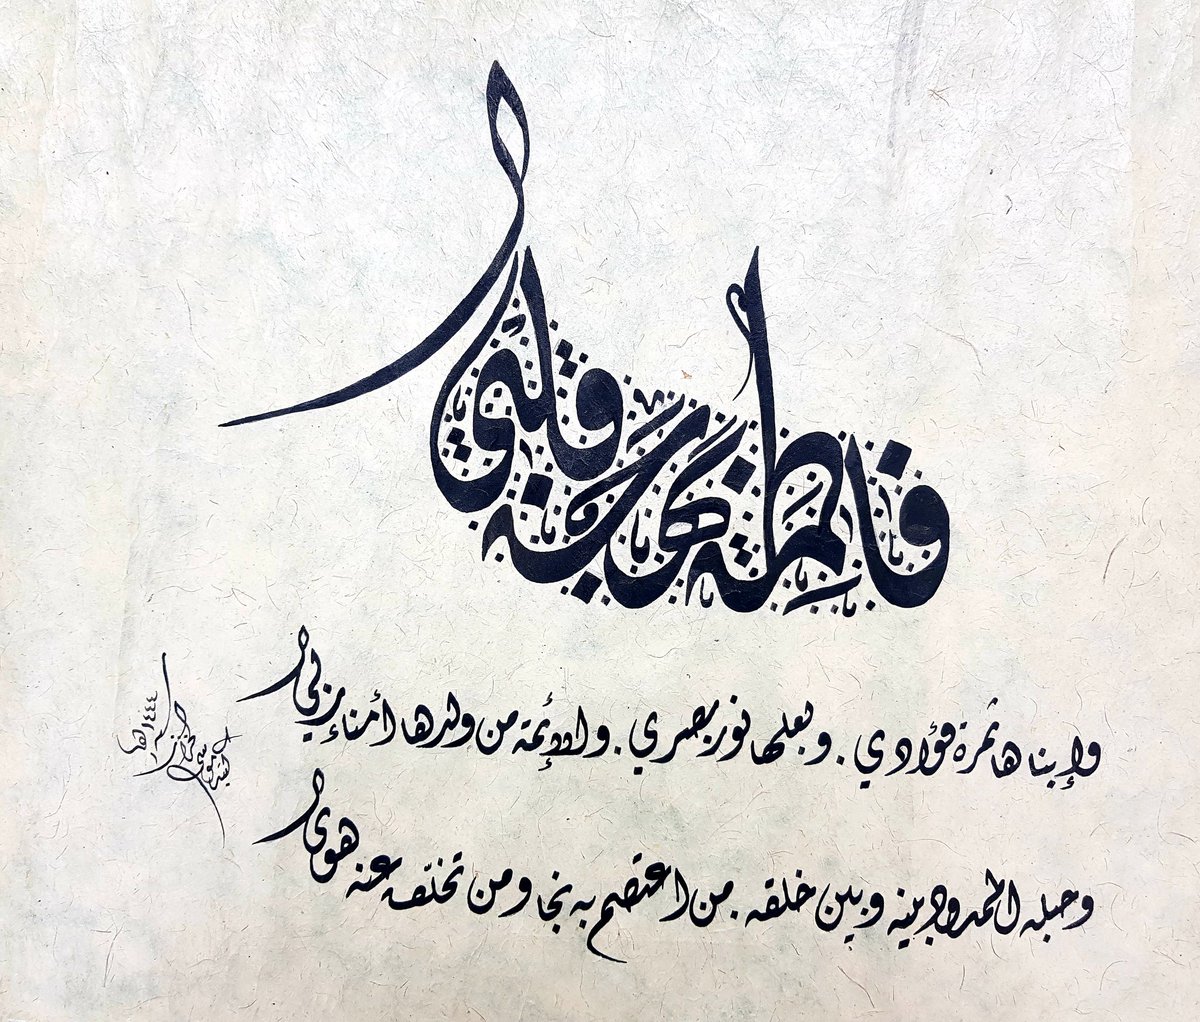 فاطمة بهجة قلبي
وإبناها ثمرة فؤادي . وبعلها نور بصري . والأئمة من ولدها أمناء ربي
وحبله الممدود بينه وبين خلقه . من اعتصم به نجا ومن تخلّف عنه هوى
١٤٤٤